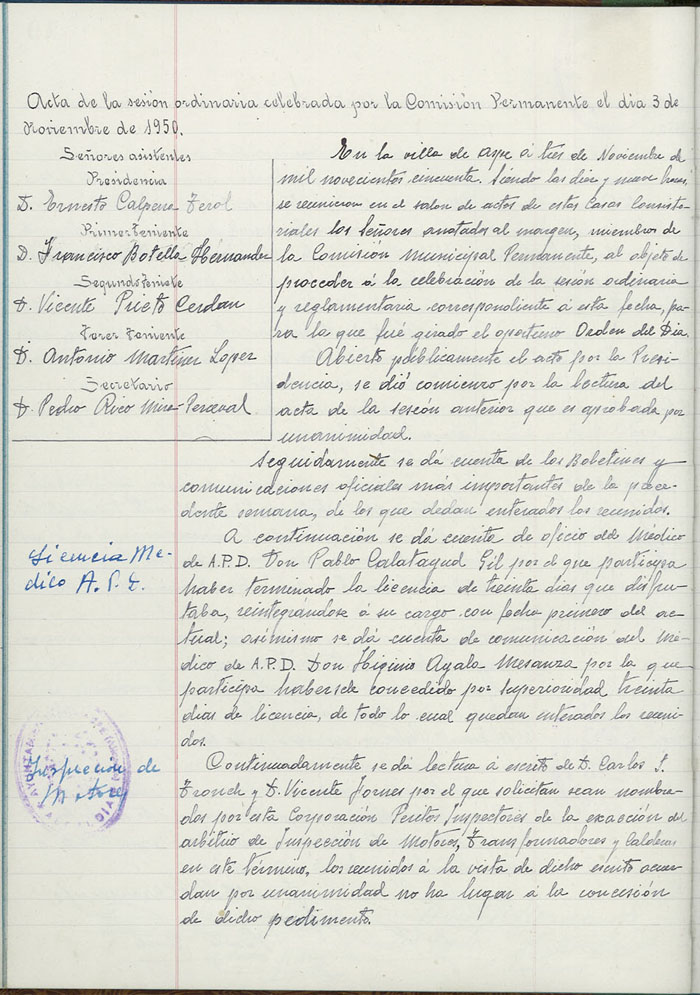 Acta de la sesión ordinaria celebrada por la Comisión Permanente el dia 3 de
Noviembre de 1950.
Señores asistentes
Presidencia
D. Ernesto Calpena Ferol
Primer Teniente
D. Francisco Botella Hernandez
Segundo Teniente
D. Vicente Prieto Cerdan
Tercer Teniente
D. Antonio Martinez Lopez
Secretario
D. Pedro Rico Mira-Perceval
En la villa de Aspe á tres de Noviembre de
mil novecientos cincuenta. Siendo las diez y nueve horas
se reunieron en el salon de actos de estas Casas Consisto-
riales los Señores anotados al margen, miembros de
la Comisión Municipal Permanente, al objeto de
proceder á la celebración de la sesión ordinaria
y reglamentaria correspondiente á esta fecha, pa-
ra la que fué girado el oportuno Orden del Dia.
Abierto públicamente el acto por la Presi-
dencia, se dió comienzo por la lectura del
acta de la sesión anterior que es aprobada por
unanimidad.
Seguidamente se dá cuenta de los Boletines y
comunicaciones oficiales más importantes de la prece-
dente semana, de los que dedan enterados los reunidos.
Licencia Me-
dico A.P.D.
A continuación se dá cuenta de oficio del Médico
de A.P.D. Don Pablo Calatayud Gil por el que participa
haber terminado la licencia de treinta dias que disfru-
taba, reintegrandose á su cargo con fecha primero del ac-
tual; asimismo se dá cuenta de comunicación del Mé-
dico de A.P.D. Don Higinio Ayala Mesanza por la que
participa habersele concedido por Superioridad treinta
dias de licencia, de todo lo cual quedan enterados los reuni-
dos.
Inspección de
Motores
Continuadamente se dá lectura á escrito de D. Carlos
Tronch y D. Vicente Fornes por el que solicitan sean nombra-
dos por esta Corporación Peritos Inspectores de la exacción del
arbitrio de Inspección de Motores, Transformadores y Calderas
en este término, los reunidos á la vista de dicho escrito acuer-
dan por unanimidad no ha lugar á la concesión
de dicho pedimento.